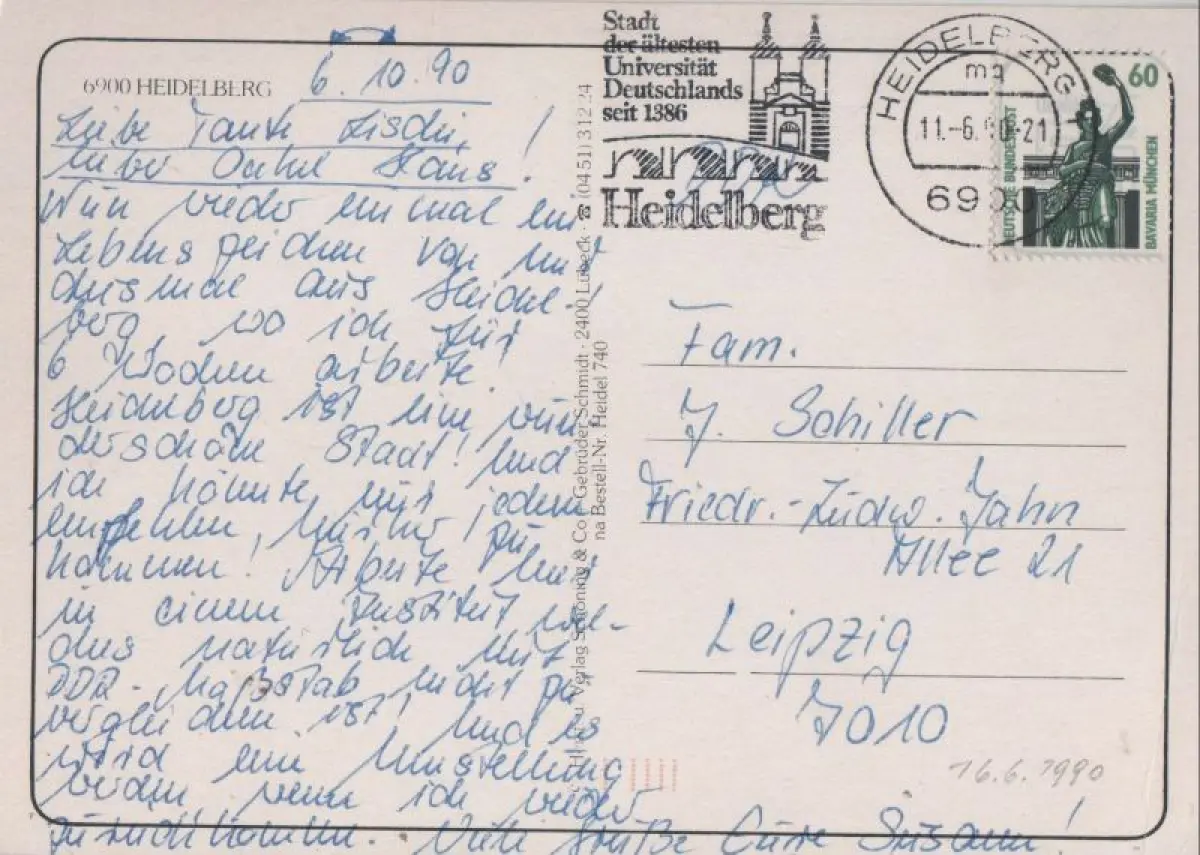 6900 HEIDELBERG
6.10.90
Liebe Tante Lischi,
lieber Onkel Hans!
Nun wieder einmal ein
Lebenszeichen von mir
diesmal aus Heidel-
berg, wo ich für
6 Wochen arbeite!
Heidelberg ist eine wun-
derschöne Stadt! Und
ich könnte nur jedem
empfehlen, hierher zu
kommen! Arbeite hier
in einem Institut wel-
ches natürlich mit
DDR-Maßstab nicht zu
vergleichen ist! Und es
wird eine Umstellung
werden wenn ich wieder
zurückkomme. Viele Grüße Eure Susann!
Verlag Schöning & Co. u. Gebrüder Schmidt · 2400 Lübeck · ☎ (04 51) 3 12 24
na Bestell-Nr. Heidel 740
Stadt
der ältesten
Universität
Deutschlands
seit 1386
Heidelberg
HEIDELBERG 1
mq
11.-6.90-21
6900
60
DEUTSCHE BUNDESPOST
BAVARIA MÜNCHEN
Fam.
J. Schiller
Friedr.-Ludw. Jahn
Allee 21
Leipzig
7010
16.6.1990